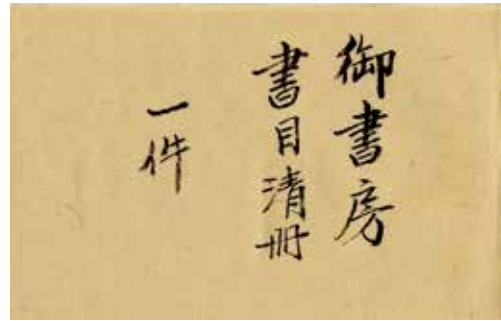 御書房
書目清冊
一件